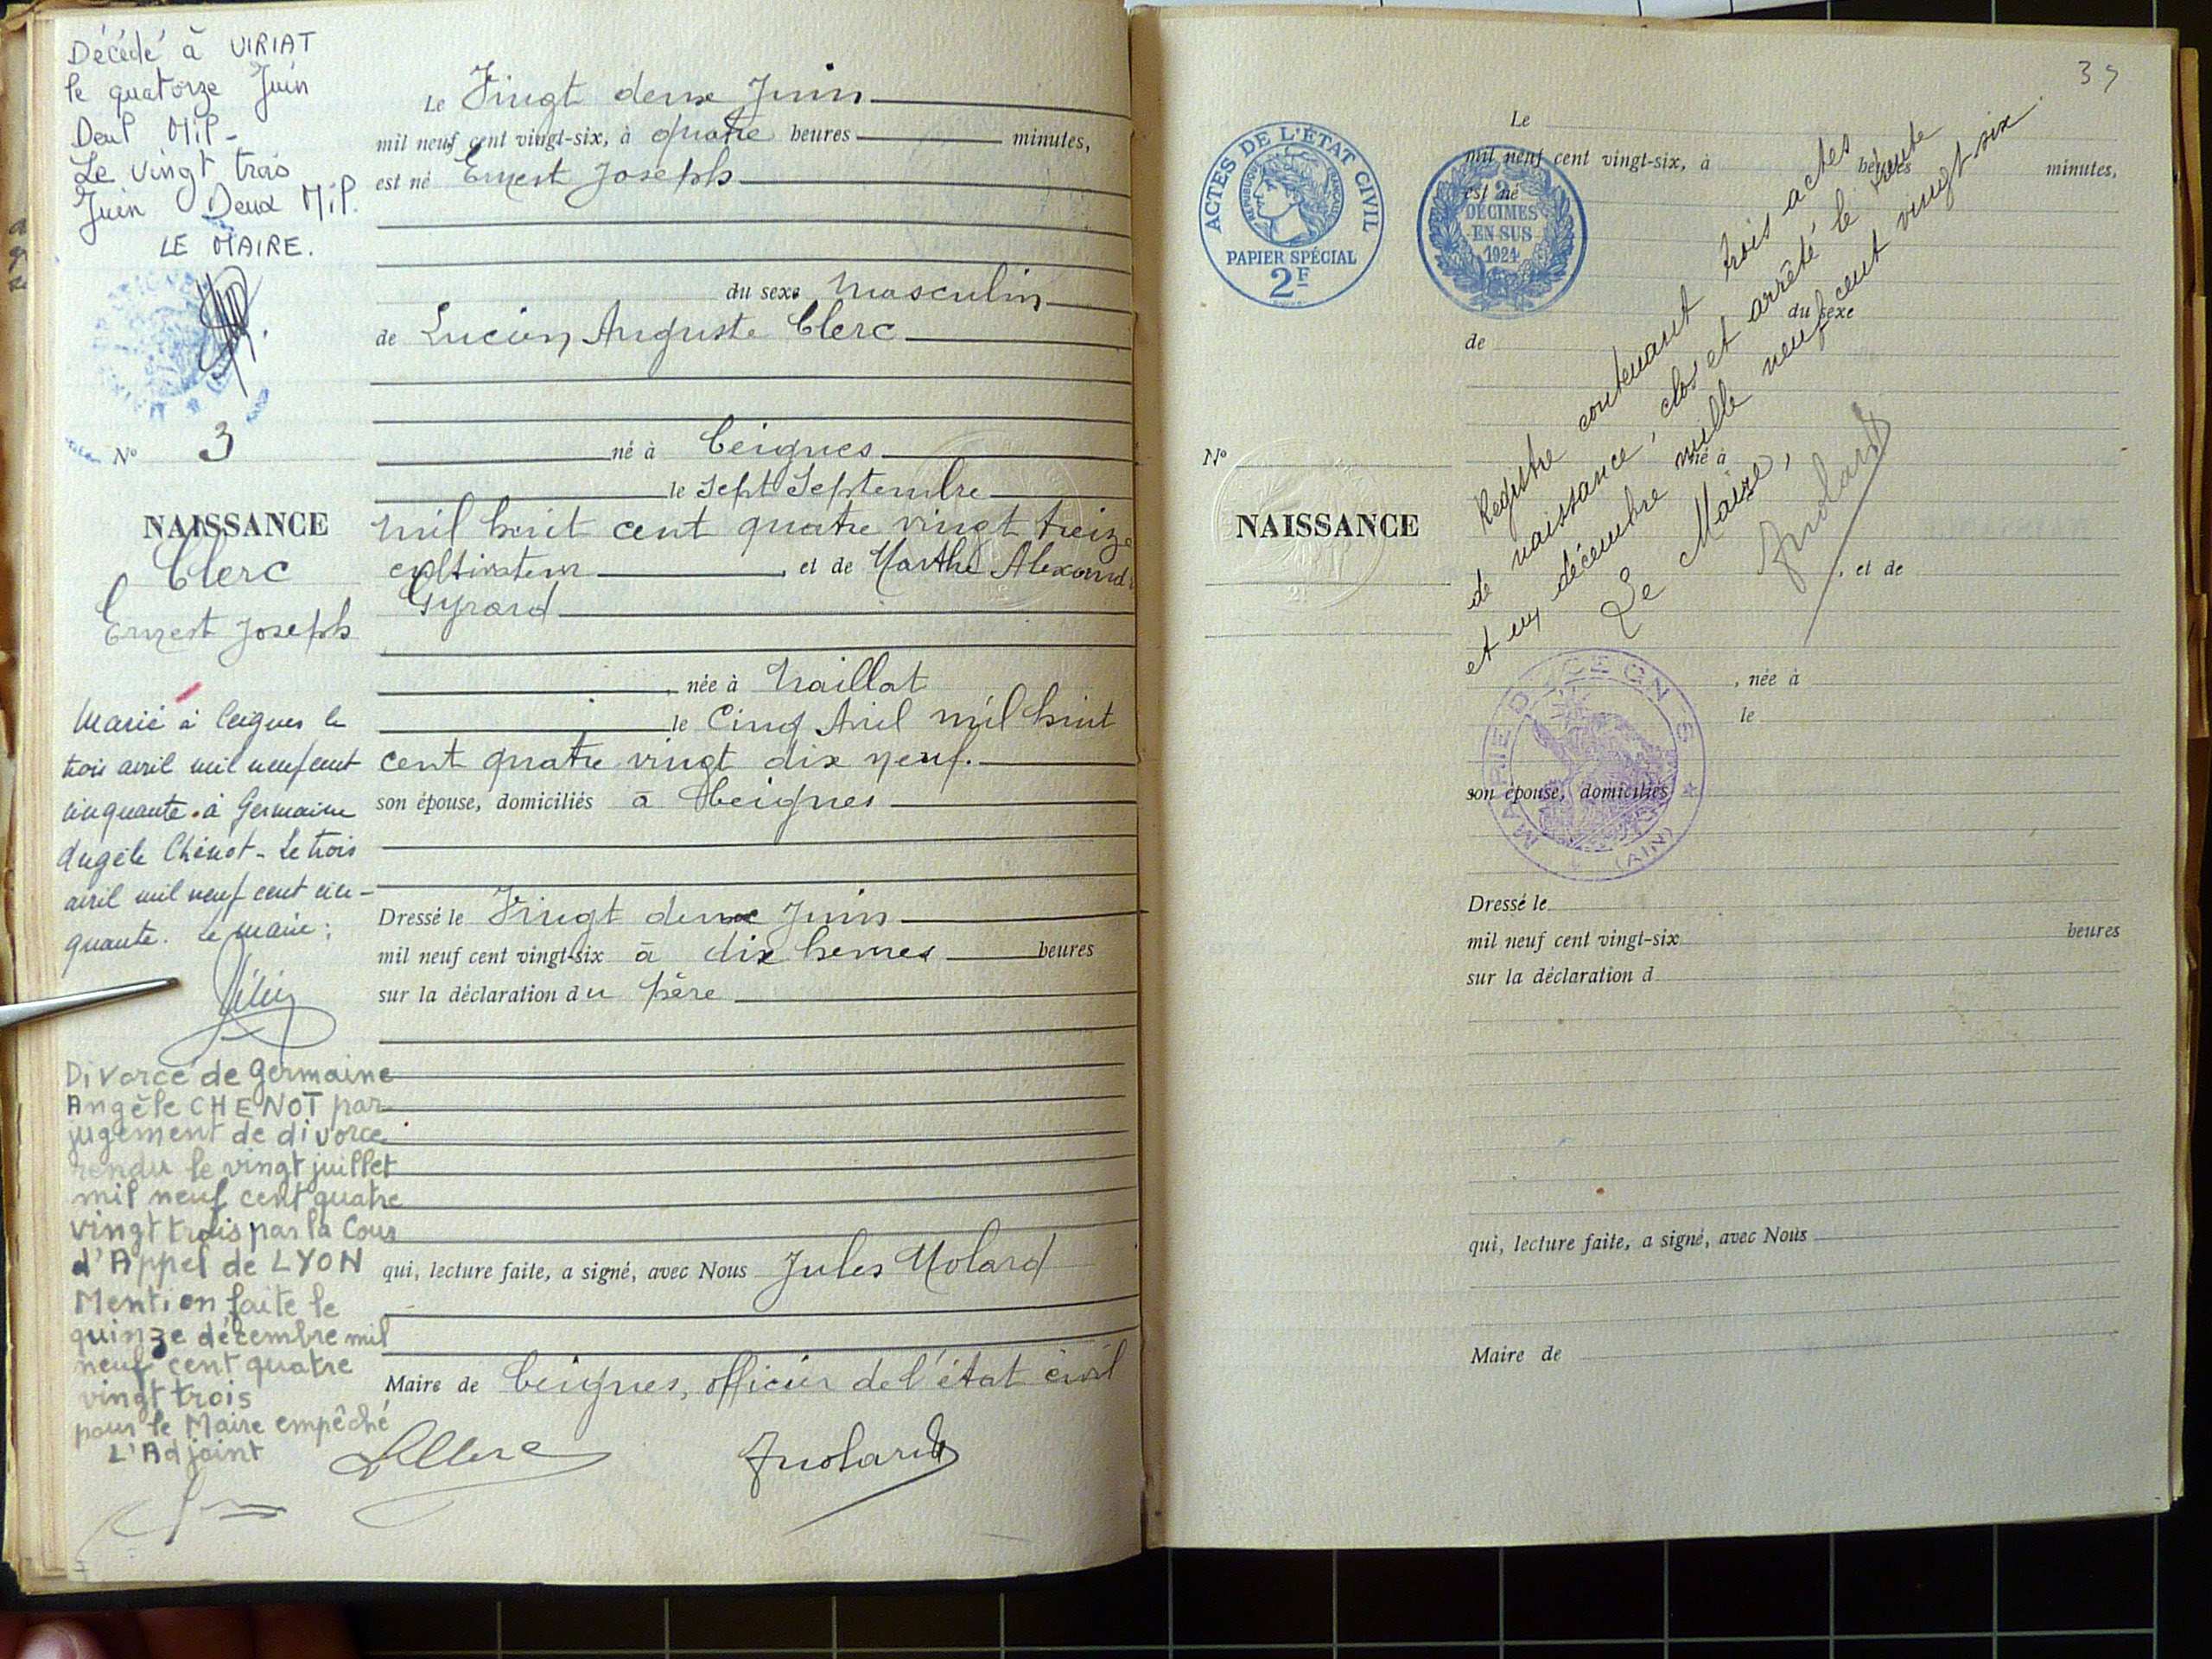 Décédé à VIRIAT
le quatorze Juin
Deux Mil -
Le vingt trois
Juin Deux Mil.
LE MAIRE.
N° 3
NAISSANCE
Clerc
Ernest Joseph
Marié à Ceignes le
trois avril mil neuf cent
cinquante à Germaine
Angèle Chenot - Le trois
avril mil neuf cent cin-
quante. Le maire;
Divorcé de Germaine
Angèle CHENOT par
jugement de divorce
rendu le vingt juillet
mil neuf cent quatre
vingt trois par la Cour
d'Appel de LYON
Mention faite le
quinze décembre mil
neuf cent quatre
vingt trois
pour le Maire empêché
L'Adjoint
Le Vingt deux Juin
mil neuf cent vingt-six, à quatre heures minutes,
est né Ernest Joseph
du sexe masculin
de Lucien Auguste Clerc
né à Ceignes
le sept Septembre
mil huit cent quatre vingt treize
cultivateur, et de Marthe
Gyrard
née à Maillat
le Cinq Avril mil huit
cent quatre vingt dix neuf.
son épouse, domiciliés à Ceignes
Dressé le Vingt deux Juin
mil neuf cent vingt-six à dix heures heures
sur la déclaration du père
qui, lecture faite, a signé, avec Nous Jules Molard
Maire de Ceignes, officier de l'état civil
LClerc
JMolard
ACTES DE L'ÉTAT CIVIL
RÉPUBLIQUE FRANÇAISE
PAPIER SPÉCIAL
2F
2
DÉCIMES
EN SUS
1924
N°
NAISSANCE
Le
mil neuf cent vingt-six, à heures minutes,
est né
du sexe
de
né à
le
, et de
, née à
le
son épouse, domiciliés
Dressé le
mil neuf cent vingt-six heures
sur la déclaration d
qui, lecture faite, a signé, avec Nous
Maire de
Registre contenant trois actes
de naissance, clos et arrêté le trente
et un décembre mille neuf cent vingt six
Le Maire,
JMolard
MAIRIE DE CEIGNES
(AIN)